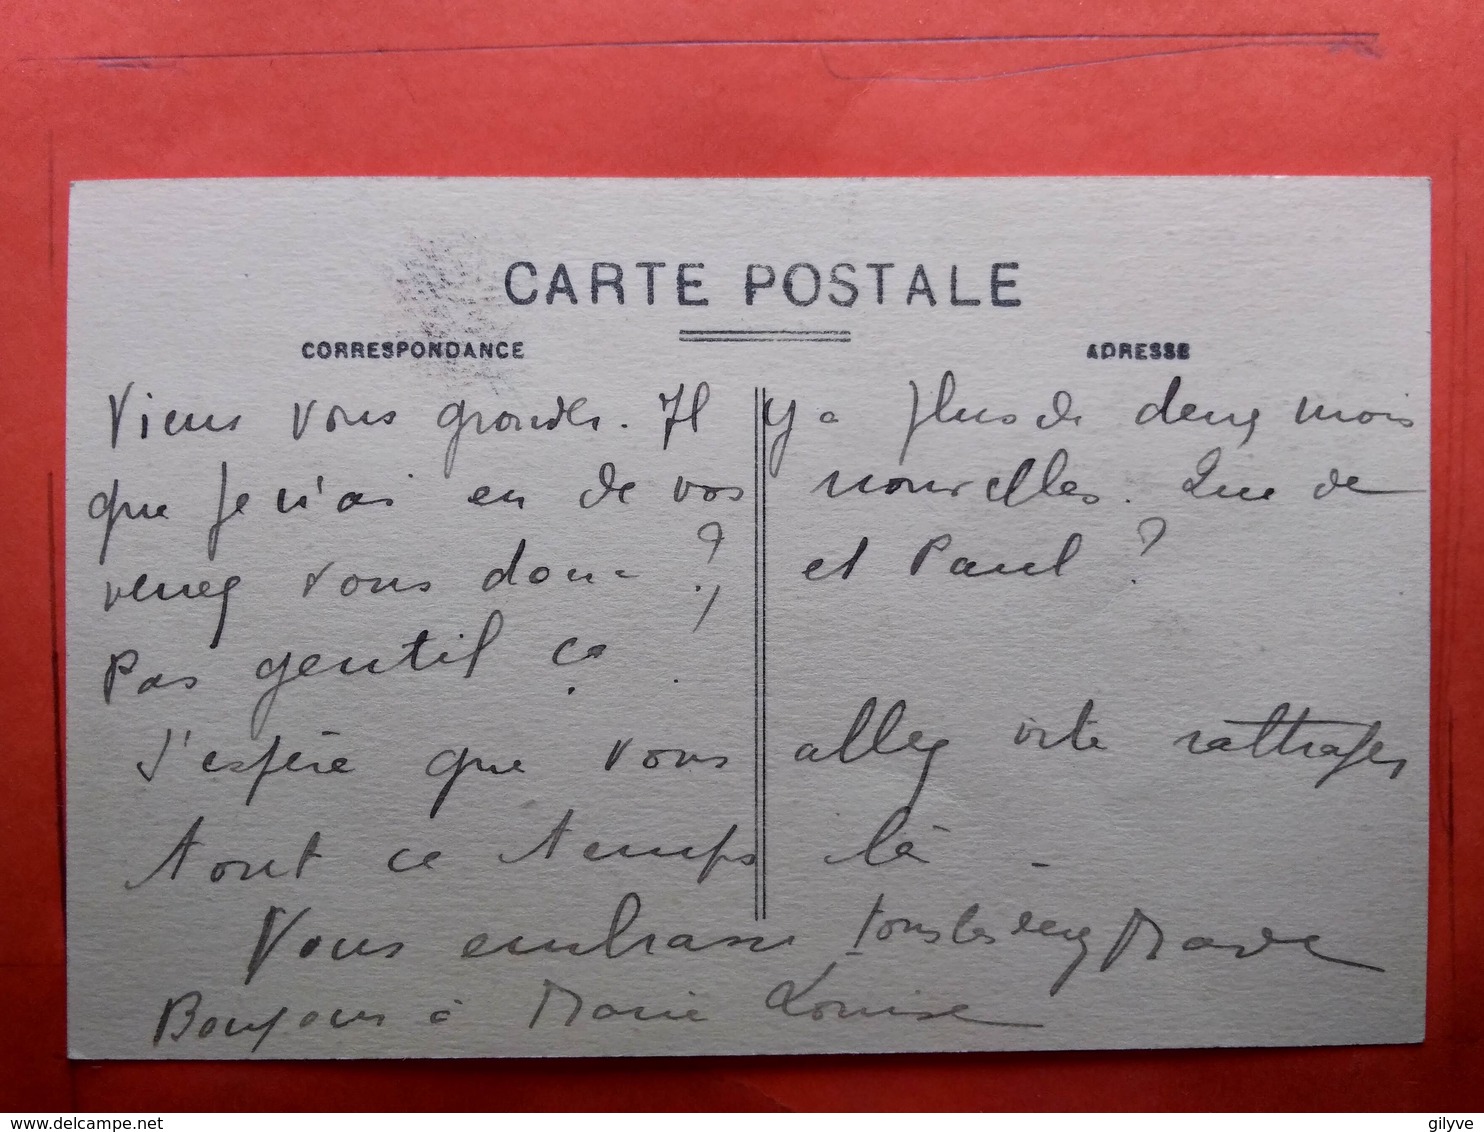 CARTE POSTALE
CORRESPONDANCE
ADRESSE
Viens vous gronder. Il y a plus de deux mois
que je n'ai eu de vos nouvelles. Que de
venez vous donc ? et Paul ?
Pas gentil ça.
J'espère que vous allez vite rattraper
tout ce temps là -
Vous embrasse tous les deux
Bonjour à Marie Louise
delcampe.net
gilyve